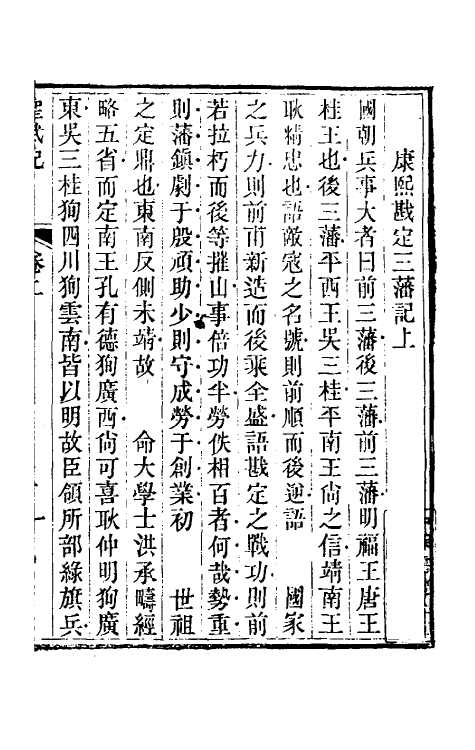 康熙戡定三藩記上
國朝兵事大者曰前三藩後三藩前三藩明福王唐王
桂王也後三藩平西王吳三桂平南王尙之信靖南王
耿精忠也語敵寇之名號則前順而後逆語　國家
之兵力則前甫新造而後乘全盛語戡定之戰功則前
若拉朽而後等摧山事倍功半勞佚相百者何哉勢重
則藩鎮劇于殷頑助少則守成勞于創業初　世祖
之定鼎也東南反側未靖故　命大學士洪承疇經
略五省而定南王孔有德狥廣西尙可喜耿仲明狥廣
東吳三桂狥四川狥雲南皆以明故臣領所部綠旗兵
聖武記　卷二　一